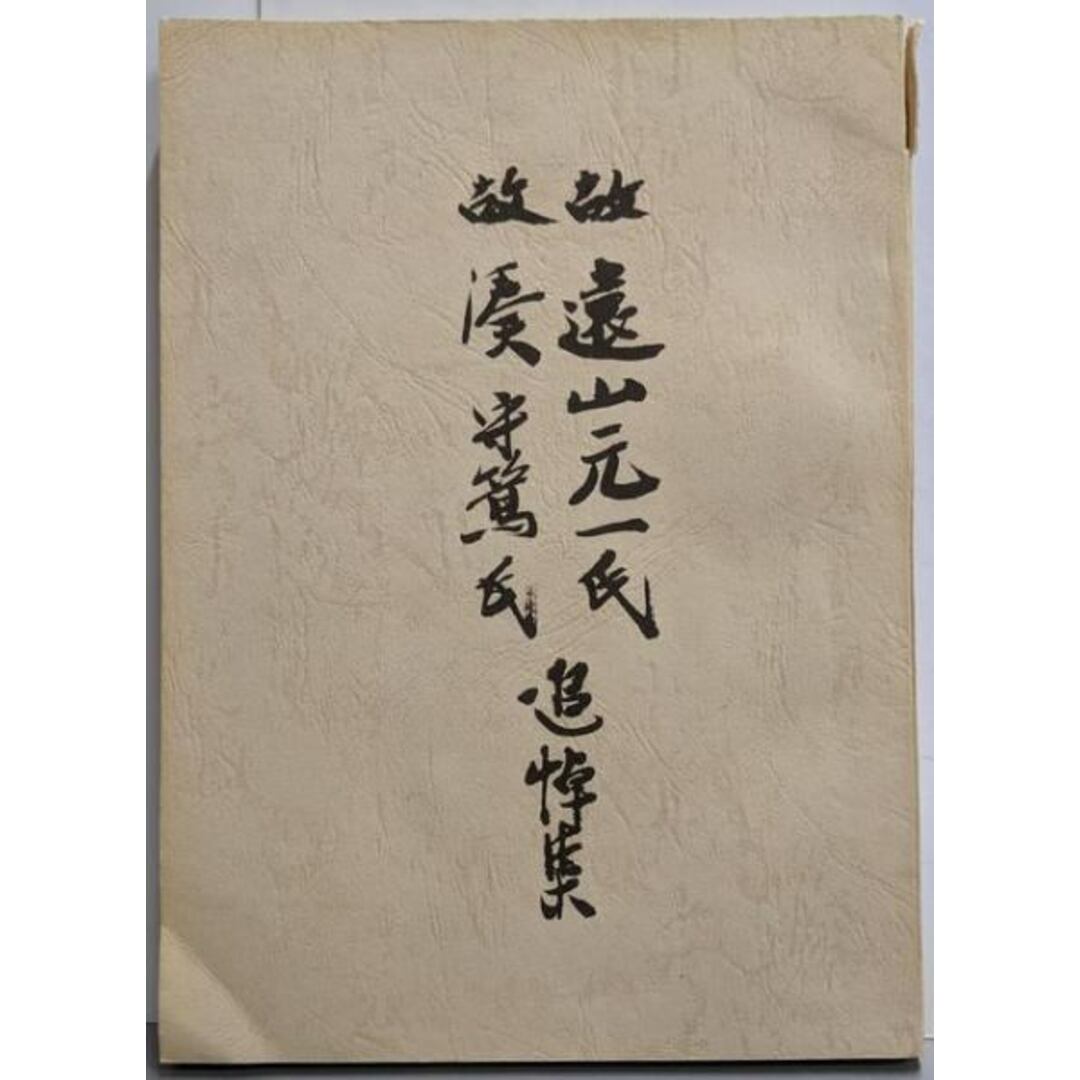 故 遠山元一氏
故 湊守篤氏
追悼集